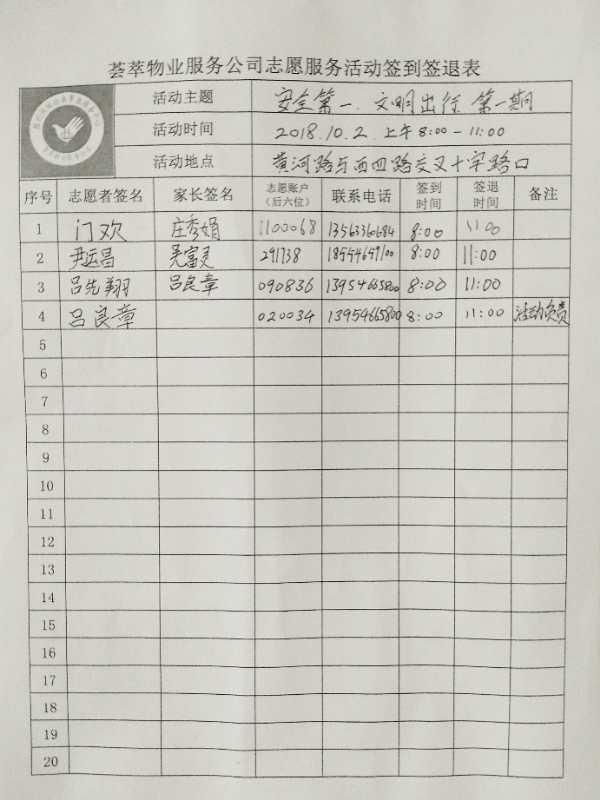 荟萃物业服务公司志愿服务活动签到签退表
活动主题 安全第一.文明出行.第一期
活动时间 2018.10.2.上午8:00-11:00
活动地点 黄河路与西四路交叉十字路口
序号 志愿者签名 家长签名 志愿账户（后六位） 联系电话 签到时间 签退时间 备注
1 门欢 庄秀娟 1100068 13563360684 8:00 11:00
2 尹运昌 291738 18554657100 8:00 11:00
3 吕先翔 吕良章 090836 13954665800 8:00 11:00
4 吕良章 020034 13954665800 8:00 11:00 活动负责
5
6
7
8
9
10
11
12
13
14
15
16
17
18
19
20